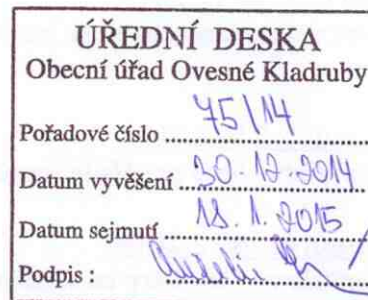 ÚŘEDNÍ DESKA
Obecní úřad Ovesné Kladruby
Pořadové číslo 75/14
Datum vyvěšení 30.12.2014
Datum sejmutí 18.1.2015
Podpis :